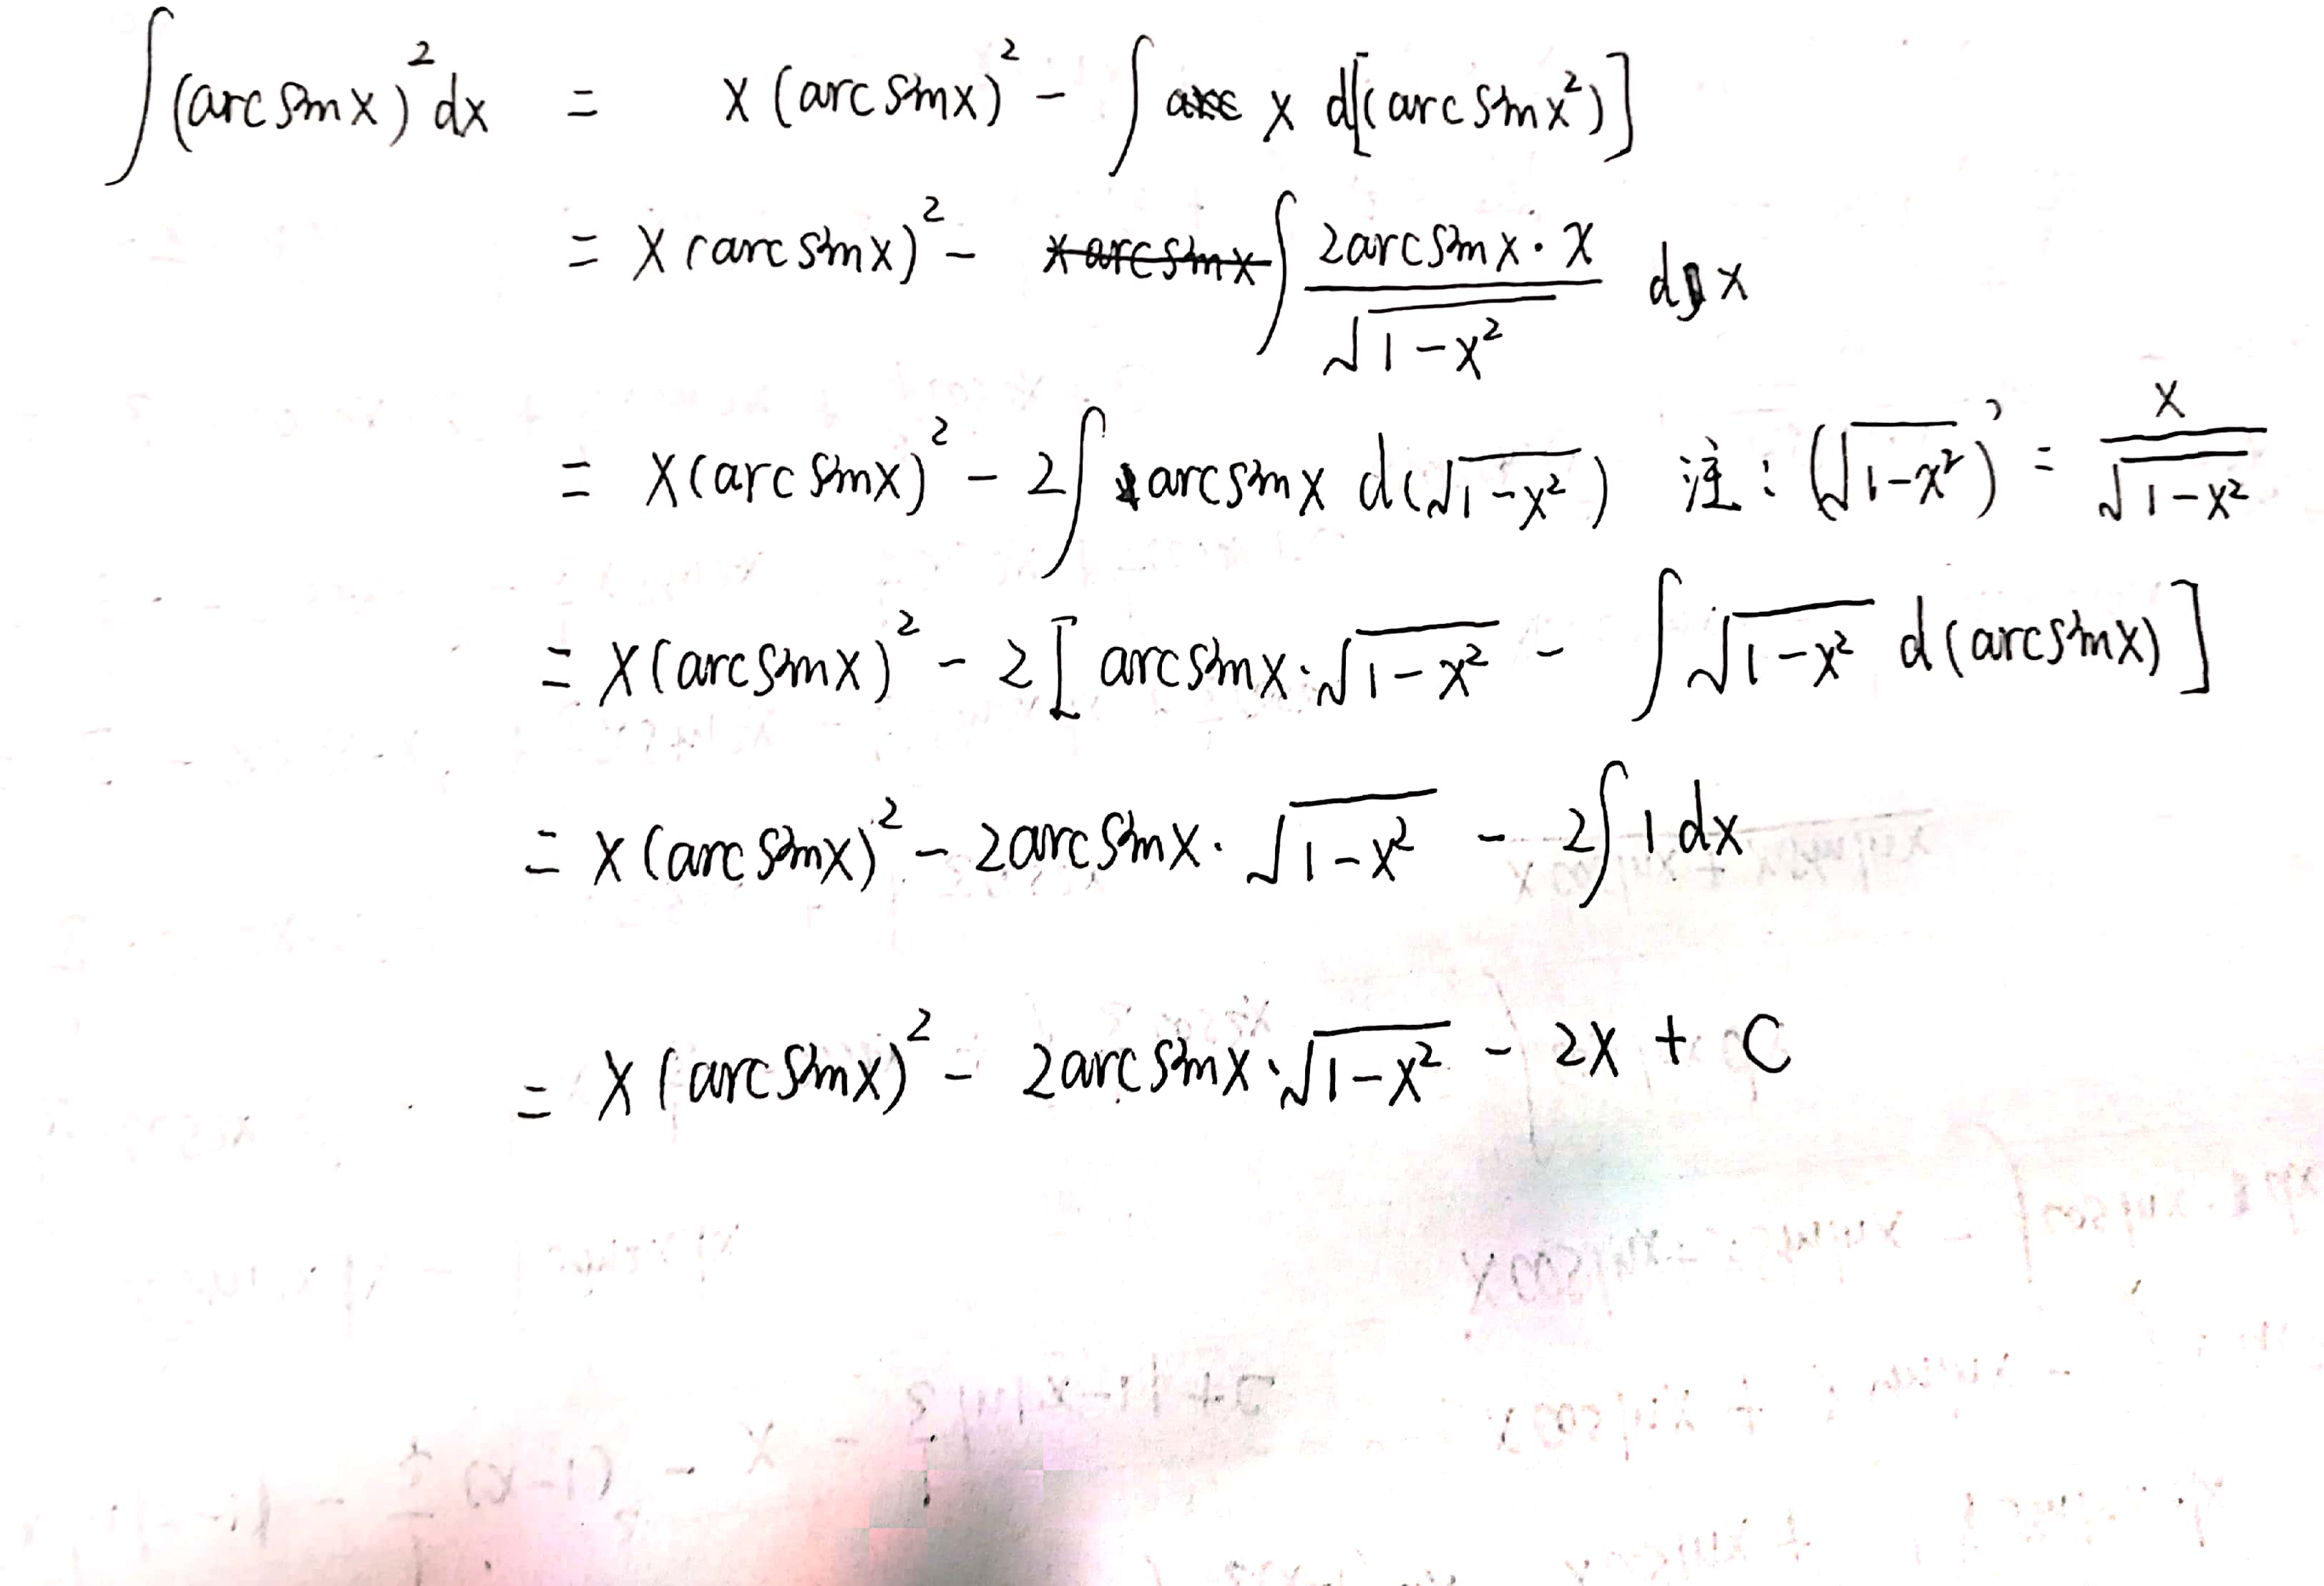 ∫(arcsinx)² dx = x(arcsinx)² - ∫ x d[(arcsinx²)]
= x(arcsinx)² - ∫ 2arcsinx·x / √(1-x²) dx
= x(arcsinx)² - 2∫ arcsinx d(√(1-x²)) 注：(√(1-x²))' = x / √(1-x²)
= x(arcsinx)² - 2[arcsinx·√(1-x²) - ∫√(1-x²) d(arcsinx)]
= x(arcsinx)² - 2arcsinx·√(1-x²) - 2∫1 dx
= x(arcsinx)² - 2arcsinx·√(1-x²) - 2x + C